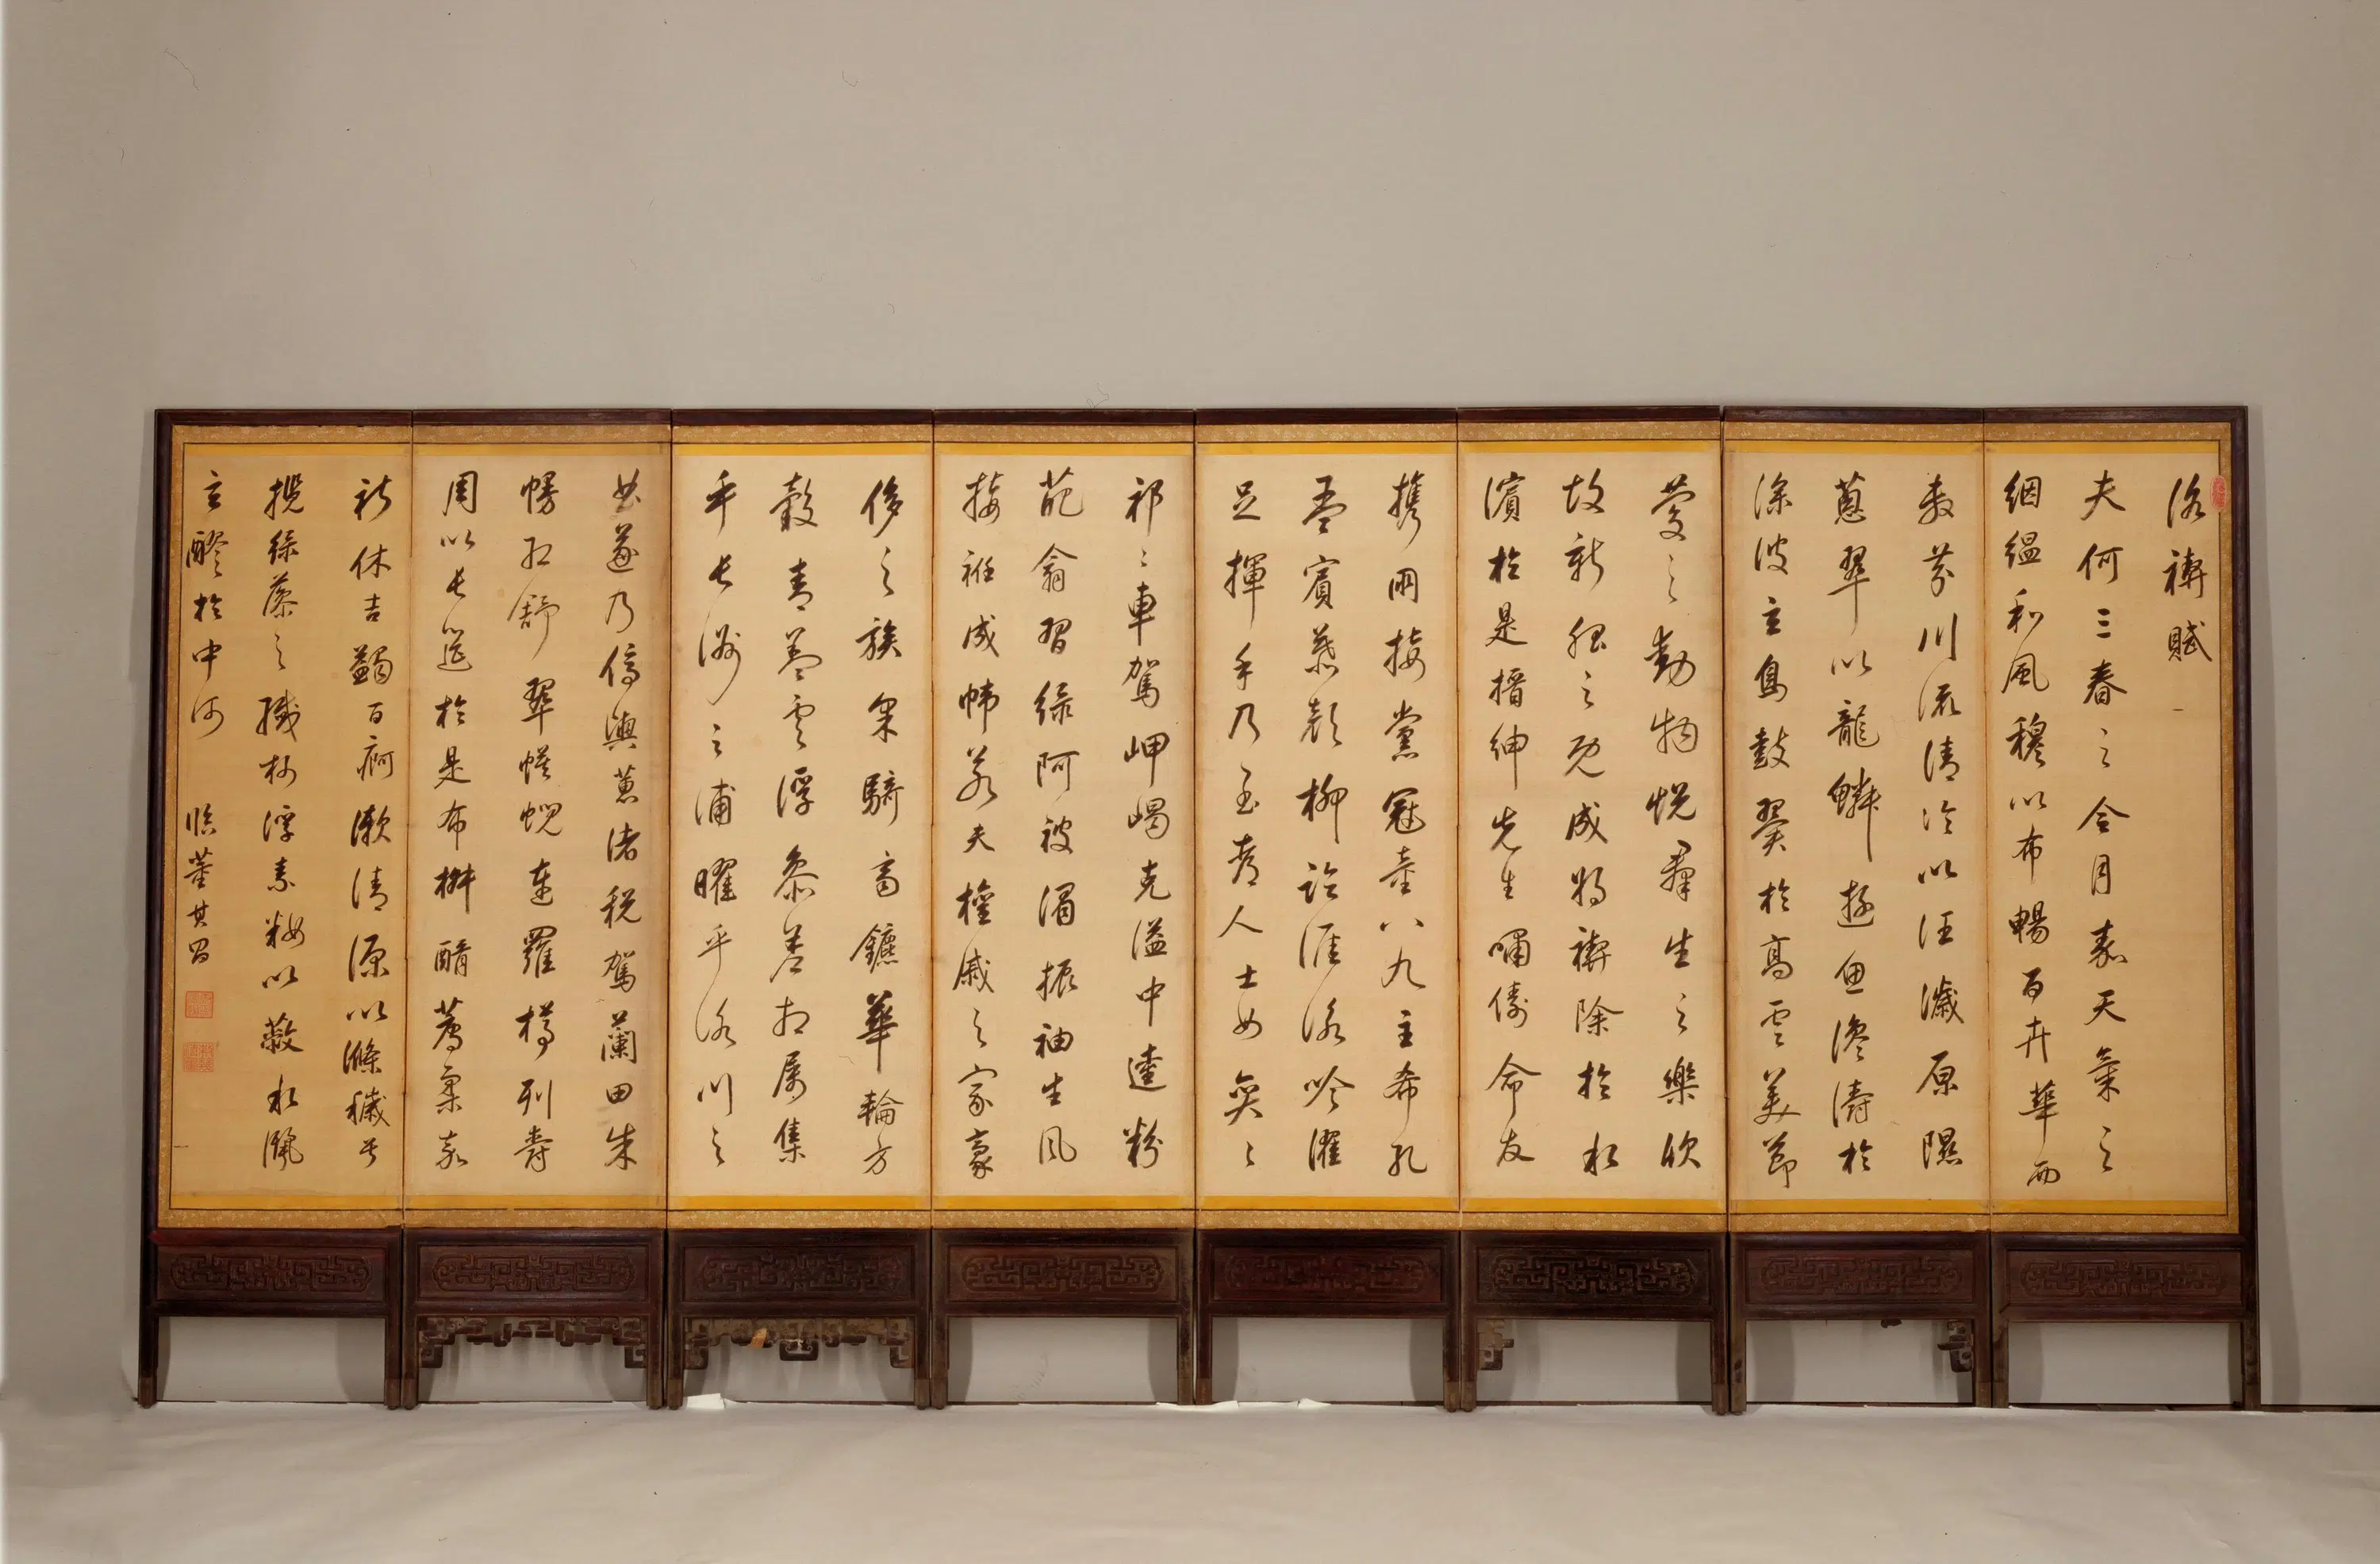 洛禊賦
夫何三春之令月嘉天氣之
絪縕和風穆以布暢百卉華而
敷芬川流清泠以汪濊原隰
蔥翠以龍鱗游魚瀺濤於
淥波玄鳥鼓翼於高雲美節
慶之動物悅羣生之樂欣
故新服之既成將禊除於水
濱於是搢紳先生嘯儔命友
攜朋接黨冠童八九主希孔
吾賓慕顏柳臨涯詠吟濯
足揮手乃至都人士女奕〻
祁〻車駕岬嵑充溢中逵粉
葩翕習緣阿被湄振袖生風
接衽成幃若夫權戚之家豪
侈之族采騎齊鑣華輪方
轂青蓋雲浮參差相屬集
乎長洲之浦曜乎洛川之
曲遂乃停輿蕙渚稅駕蘭田朱
幔虹舒翠幙蜺連羅樽列壽
周以長筵於是布椒醑薦柔嘉
祈休吉蠲百痾漱清源以滌穢兮
攬綠藻之纖柯浮素以蔽水灑
玄醪於中河 臨董其昌